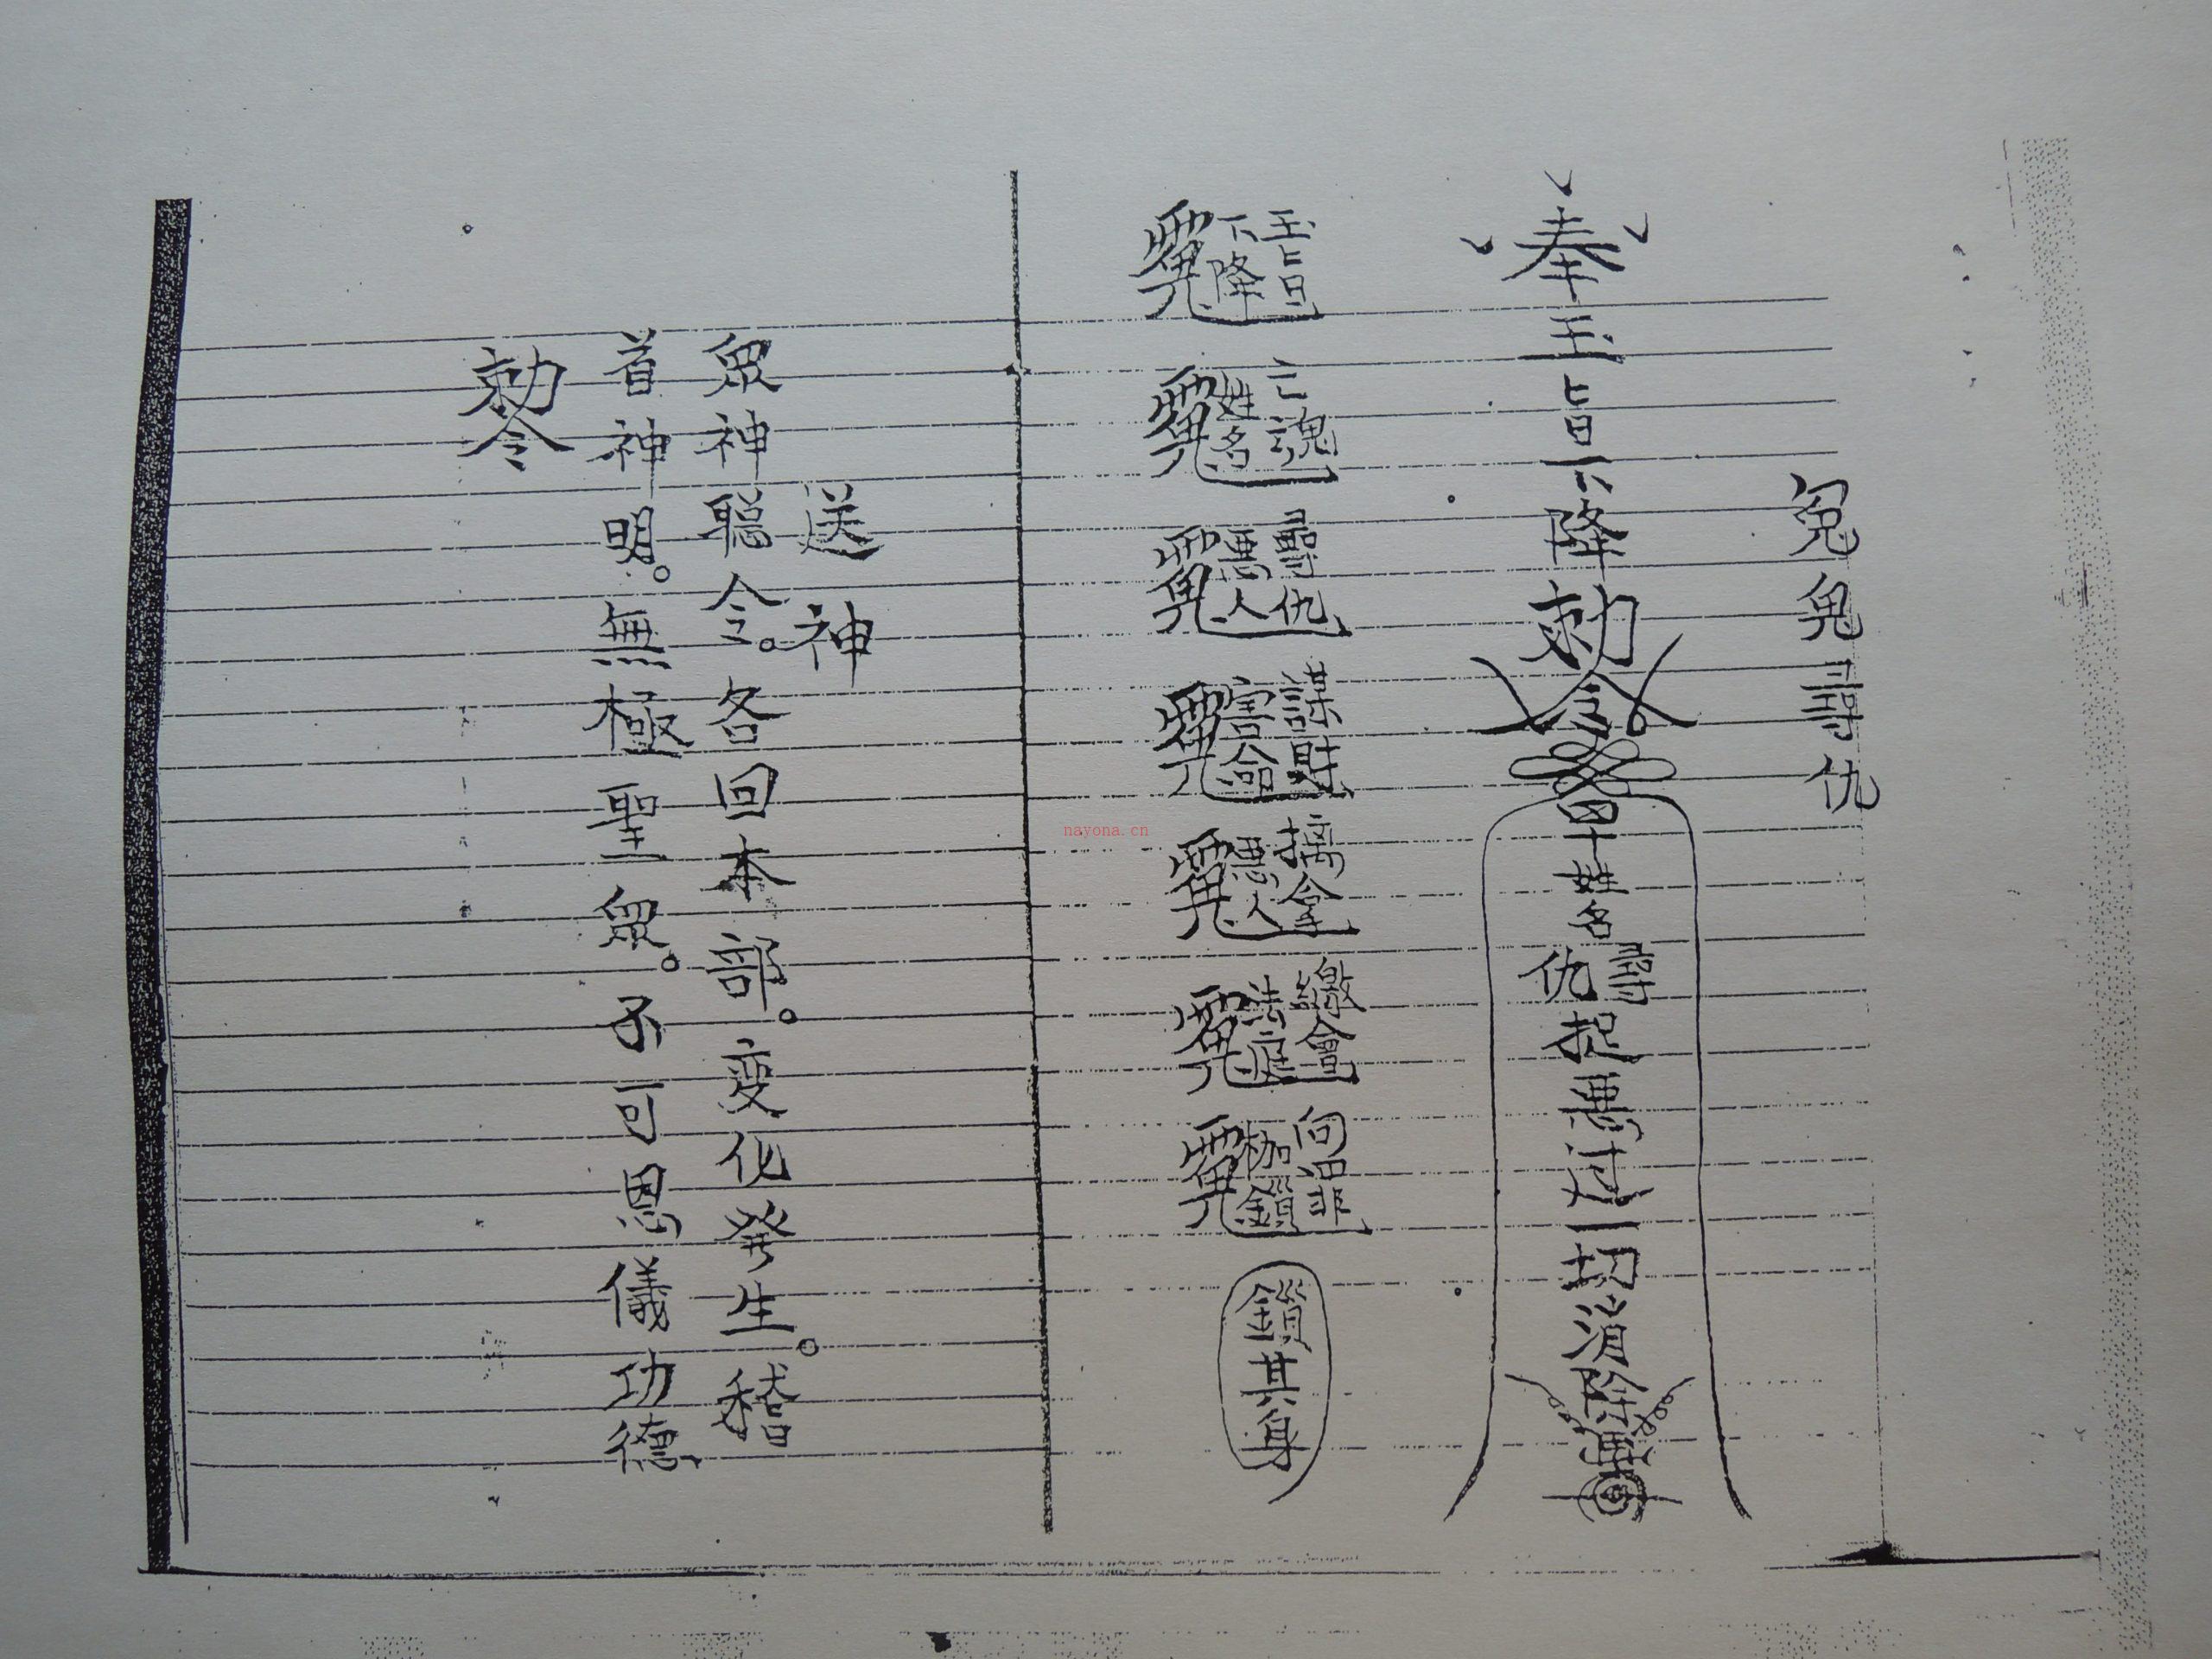 冤鬼尋仇
奉玉旨下降勅令
姓名尋仇
起悪过一切消除
玉旨下降
亡魂姓名
尋仇悪人
謀財害命
擒拿悪人
繳會法庭
问罪枷鎖
鎖其身
送神
眾神聽令。各回本部。变化発生。稽
首神明。無極聖眾。不可恩儀功德
勅令
nayona.cn